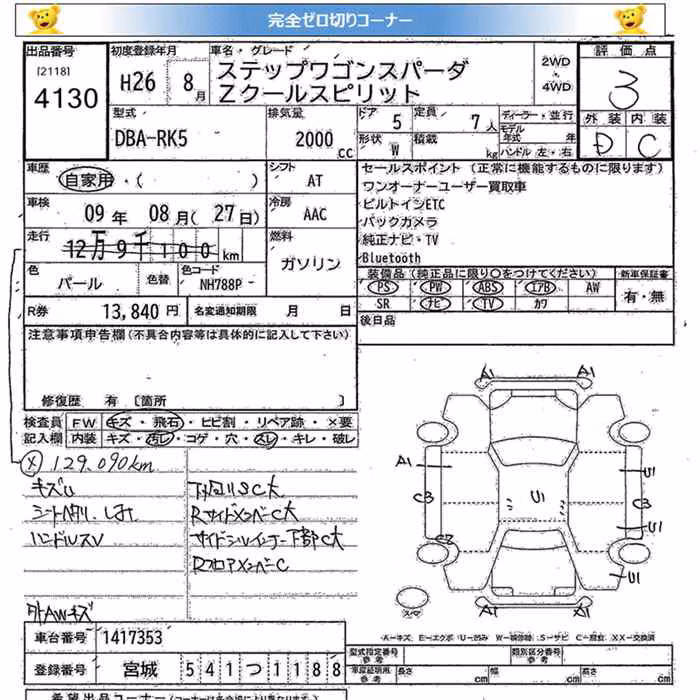 完全ゼロ切りコーナー
出品番号 初度登録年月 車名・グレード 評価点
[2118] 4130 H26 8月 ステップワゴンスパーダ 2WD 3
Zクールスピリット ・4WD
型式 排気量 ドア 5 定員 7人 ディーラー・並行 外装 内装
DBA-RK5 2000cc 形状 W 積載 kg モデル年式 年 D C
ハンドル 左・右
車歴 シフト セールスポイント (正常に機能するものに限ります)
自家用・( ) AT ワンオーナーユーザー買取車
車検 冷房 ビルトインETC
09年 08月(27日) AAC バックカメラ
走行 燃料 純正ナビ・TV
12万9千100km ガソリン Bluetooth
色 色替 色コード 装備品(純正品に限り○をつけてください) 新車保証書
パール NH788P PS PW ABS エアB AW 有・無
SR ナビ TV カワ
R券 13,840円 名変通知期限 月 日 後日品
注意事項申告欄(不具合内容等は具体的に記入して下さい)
修復歴 有 [箇所 ]
検査員 FW キズ・飛石・ヒビ割・リペア跡・×要
記入欄 内装 キズ・汚レ・コゲ・穴・スレ・キレ・破レ
× 129,090km
キズU 下廻りSC大
シートヘタリ、しみ RサイドメンバーC大
ハンドルスV サイドシルインナー下部C大
RフロアメンバーC
外AWキズ
A1 A1
A1 U1
C3 U1 C3
C2 U1
U1
スマ A1 A1
A-キズ E-エクボ U-凹み W-補修跡 S-サビ C-腐食 XX-交換済
車台番号 1417353
型式指定番号 参考 類別区分番号 参考
登録番号 宮城 541つ1188
車庫証明用 参考 長さ cm 幅 cm 高さ cm
希望出品コーナー